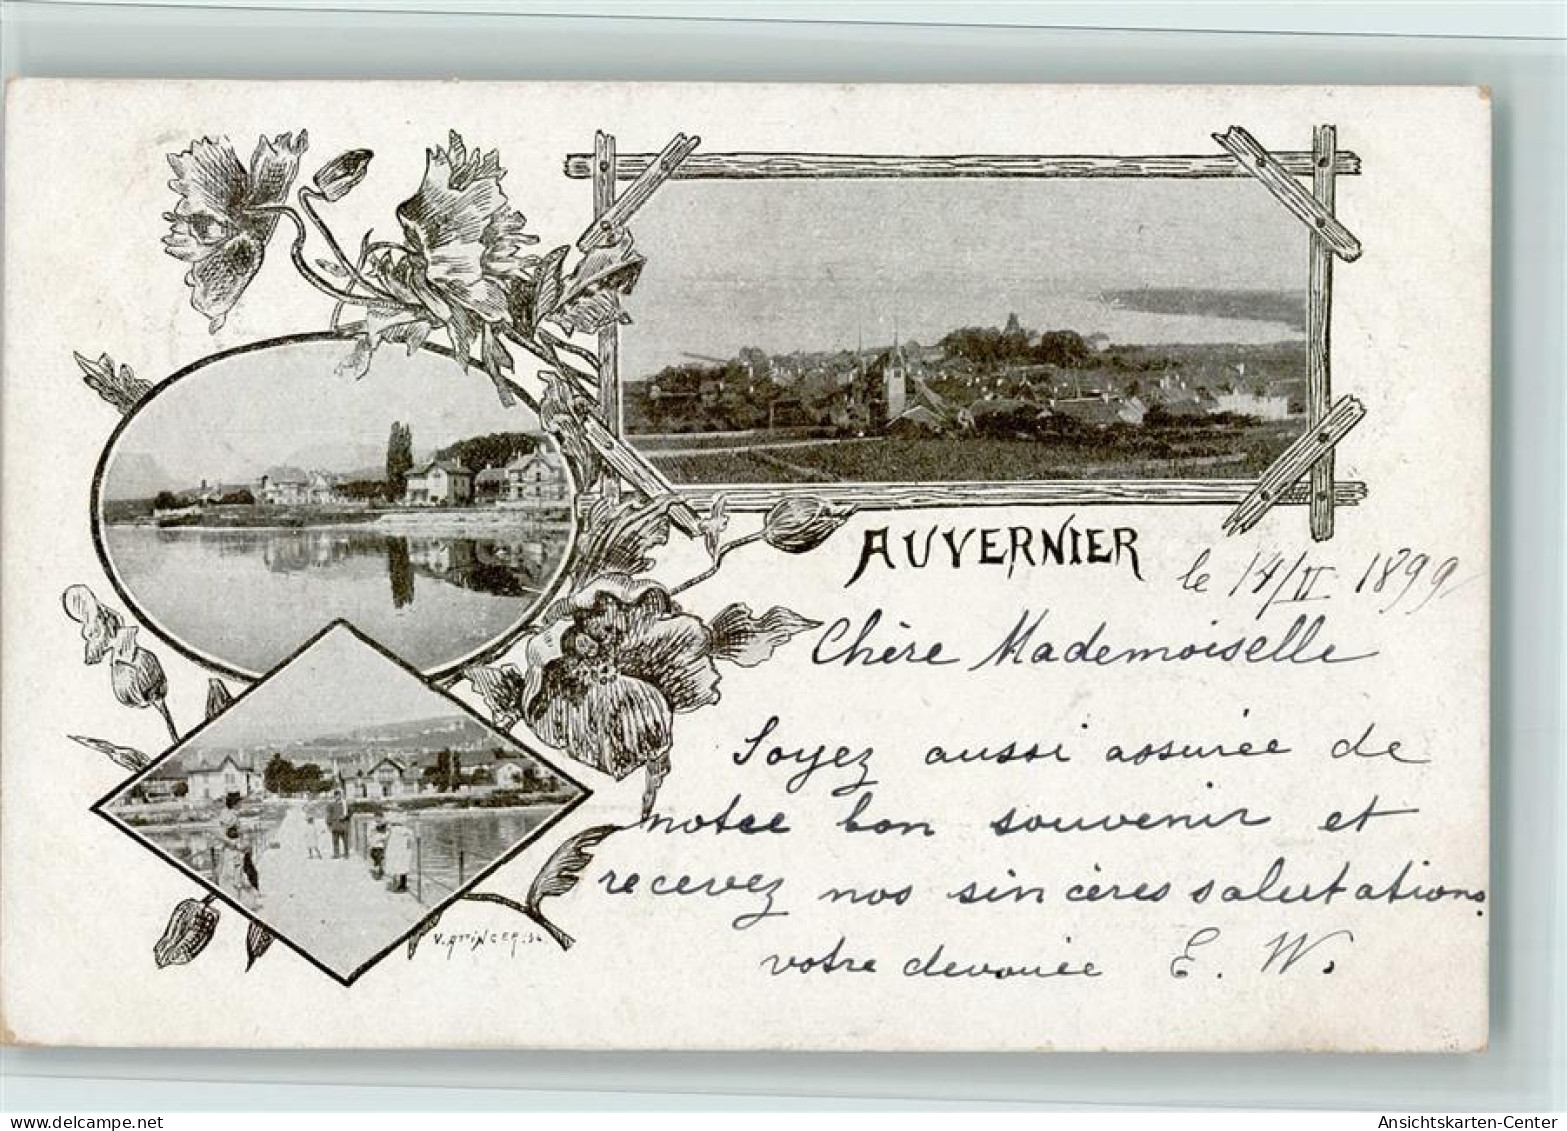 AUVERNIER
le 14/II 1899
Chère Mademoiselle
Soyez aussi assurée de
notre bon souvenir et
recevez nos sincères salutations.
votre dévouée E. W.
V. ATTINGER. Sc.
www.delcampe.net
tpm59
Ansichtskarten-Center